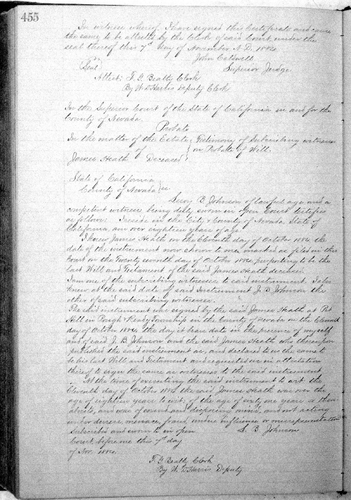 455
In witness whereof I have signed this certificate and cause
the same to be attested by the Clerk of said Court under the
seal thereof this 7th day of November A.D. 1884
John Caldwell
Superior Judge
Attest: F. G. Beatty Clerk
By Deputy Clerk
In the Superior Court of the State of California in and for the
County of Nevada.
Probate
In the matter of the Estate Testimony of Subscribing witness
of on Probate of Will.
James Heath Deceased
State of California
County of Nevada
B. Johnson of lawful age and a
competent witness being duly sworn in Open Court testifies
as follows. I reside in the City County of Nevada State of
California, am over eighteen years of age.
I knew James Heath on the Eleventh day of October 1884 the
date of the instrument now shown to me marked as filed in this
Court on the Twenty seventh day of October 1884 purporting to be the
last Will and Testament of the said James Heath deceased.
I am one of the subscribing witnesses to said instrument. I also
knew at the said date of said instrument J. B. Johnson the
other of said subscribing witnesses.
The said instrument was signed by the said James Heath at
Hill in Rough & Ready Township in the County of Nevada on the Eleventh
day of October 1884, the day it bears date in the presence of myself
and of said J. B. Johnson and the said James Heath who thereupon
published the said instrument as, and declared to us the same to
be his last Will and Testament and requested us in attestation
thereof to sign the same as witnesses to the said instrument.
At the time of executing the said instrument to wit: the
Eleventh day of October 1884 the said James Heath was over the
age of eighteen years to wit: of the age of sixty one years or there
abouts, and was of sound and disposing mind, and not acting
under duress menace, fraud, undue influence or misrepresentation
Subscribed and sworn to in open B. Johnson
Court before me this 7th day
of Nov. 1884
F. G. Beatty Clerk
By Deputy